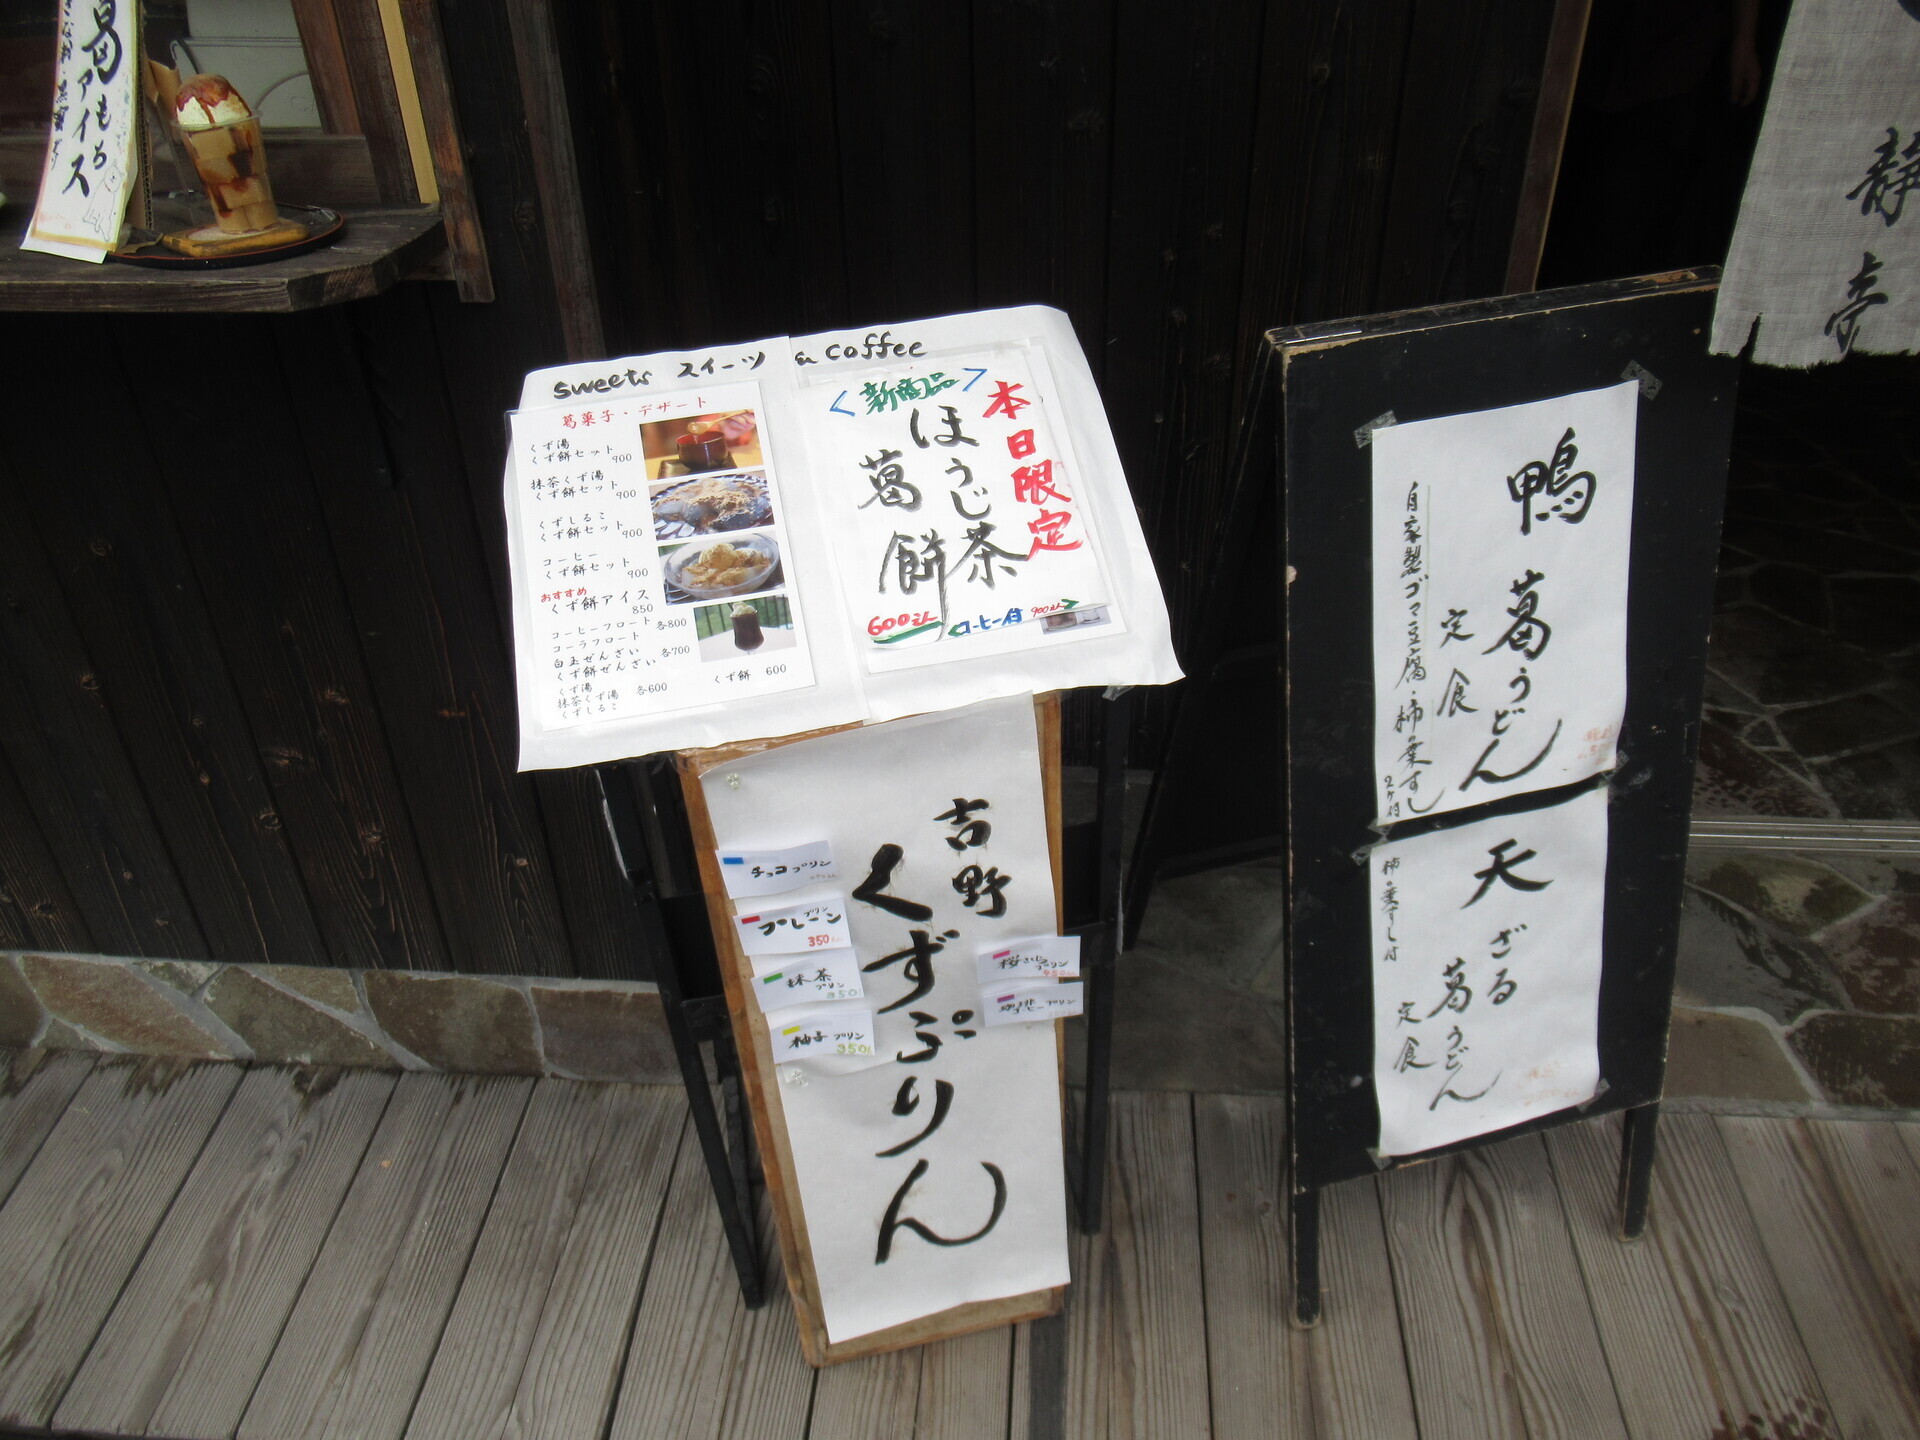 葛もちアイス
sweets スイーツ & coffee
葛菓子・デザート
くず湯
くず餅セット 900
抹茶くず湯
くず餅セット 900
くずしるこ
くず餅セット 900
コーヒー
くず餅セット 900
おすすめ
くず餅アイス
850
コーヒーフロート 各800
コーラフロート
白玉ぜんざい 各700
くず餅ぜんざい
くず湯 各600
抹茶くず湯
くずしるこ
くず餅 600
本日限定
<新商品>
ほうじ茶
葛餅
600
コーヒー付 900
吉野
くずぷりん
チョコプリン
プレーン プリン
350
抹茶 プリン
350
柚子 プリン
350
桜さくらプリン
450
珈琲 コーヒー プリン
鴨 葛うどん
定食
自家製ゴマ豆腐・柿の葉すし
2ケ付
天ざる
葛うどん
定食
柿の葉すし付
静亭